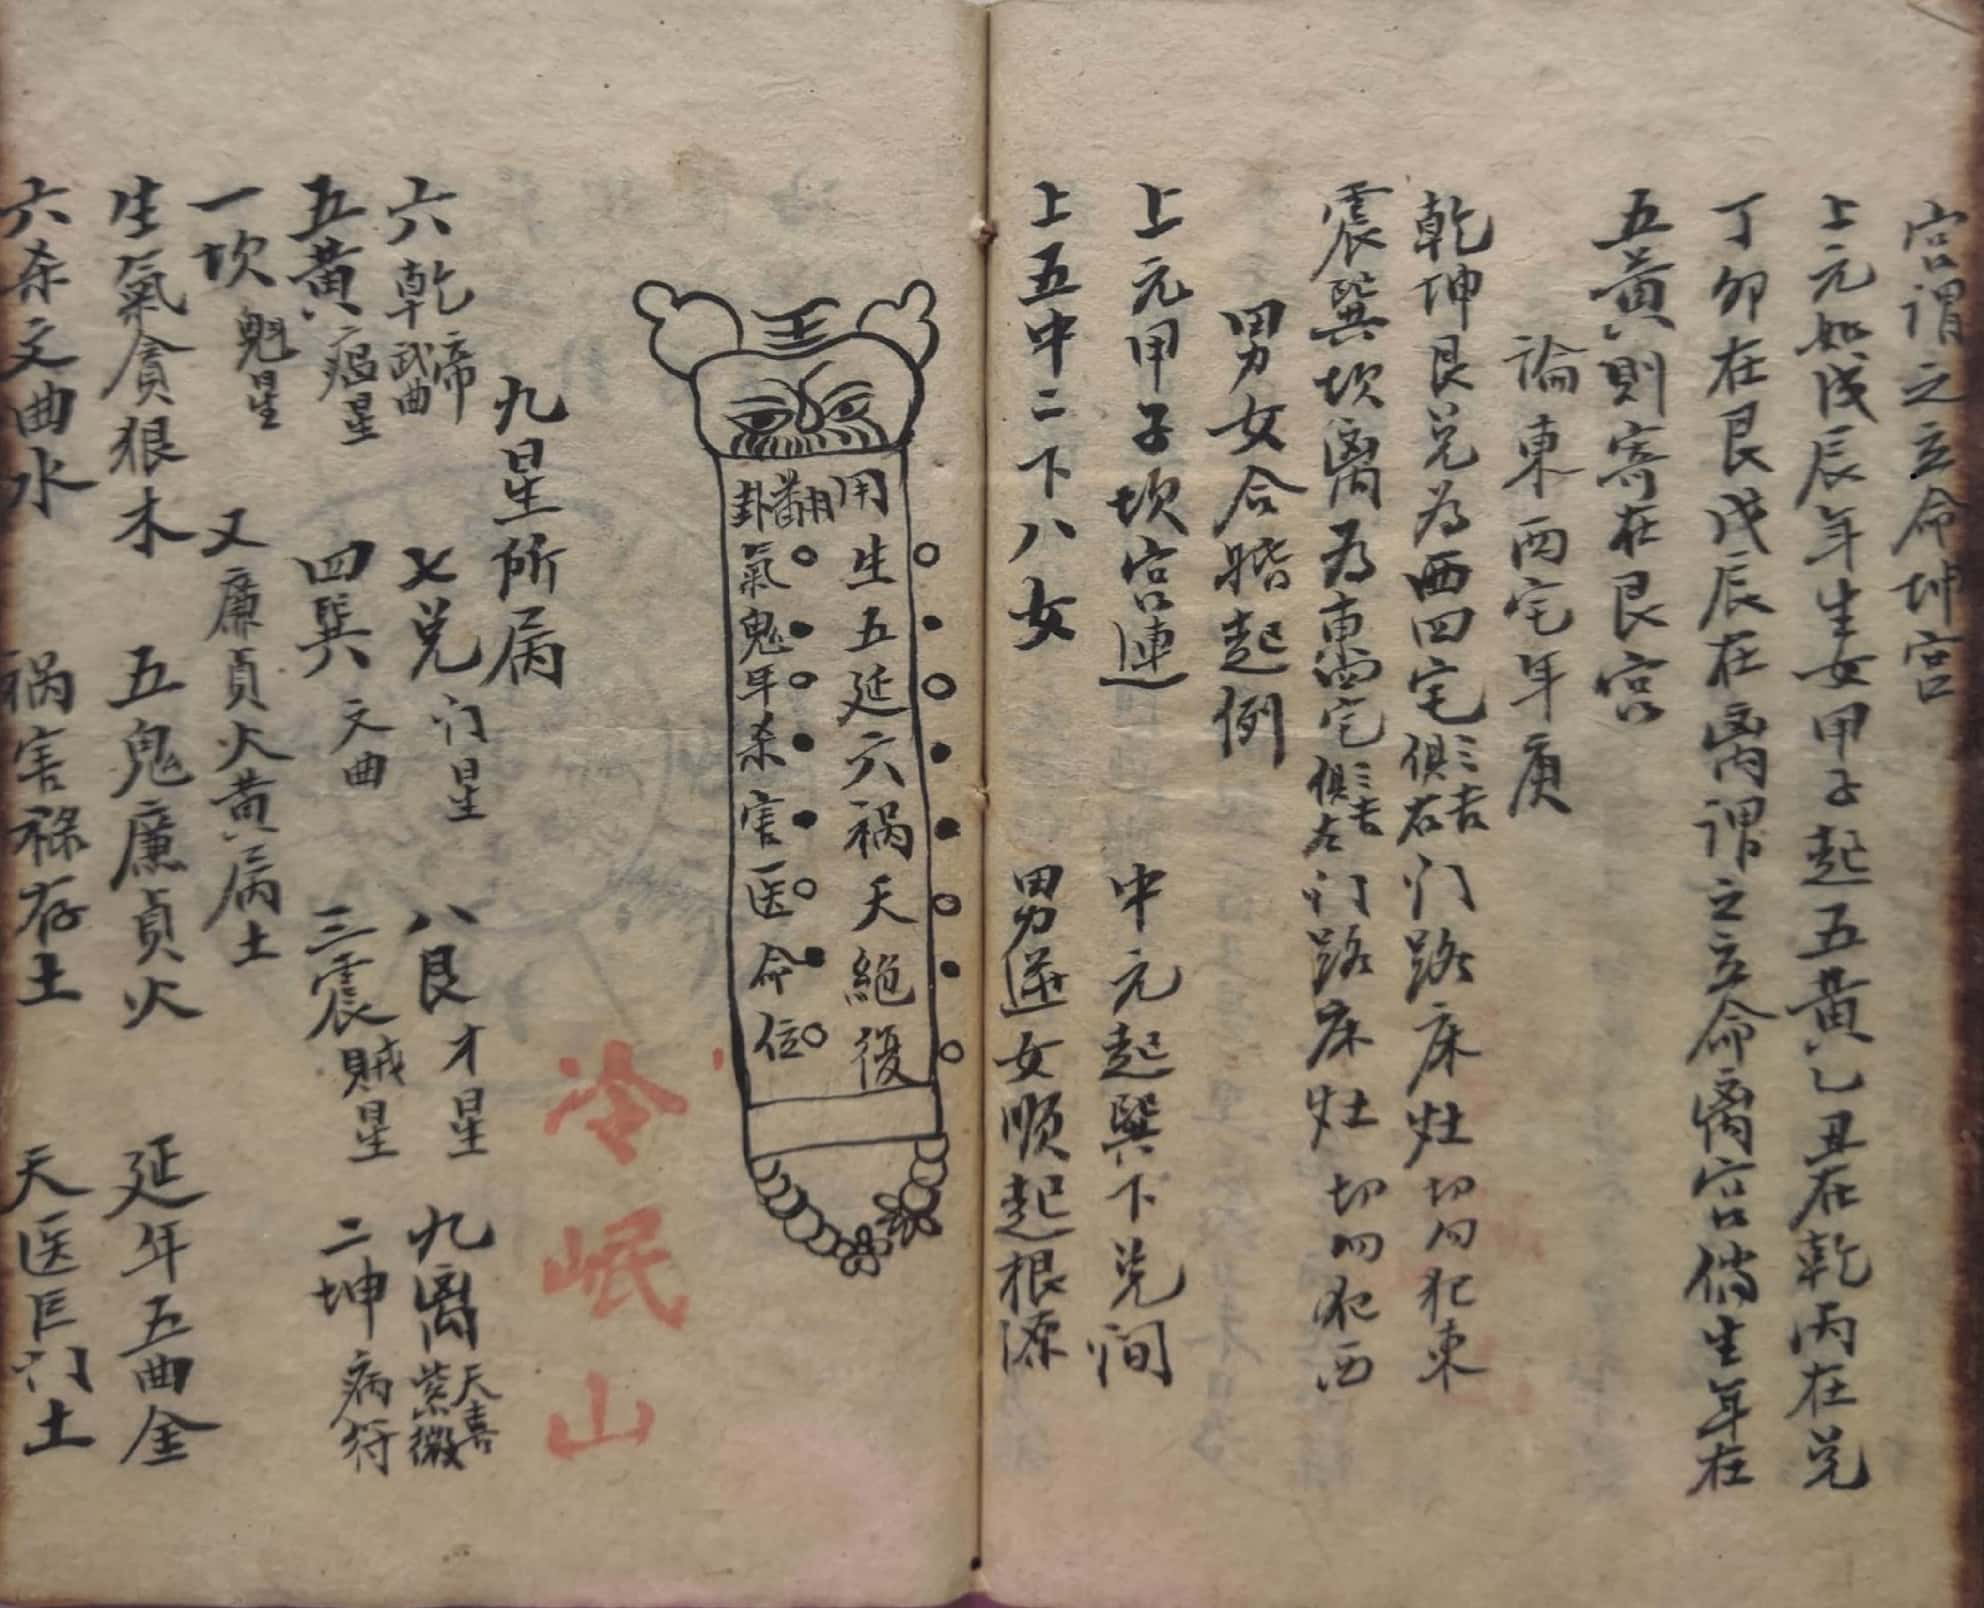 宮謂之立命坤宮
上元如戊辰年生女甲子起五黃乙丑在乾丙在兌
丁卯在艮戊辰在离謂之立命离宮倘生年在
五黃則寄在艮宮
論東西宅年庚
乾坤艮兌為西四宅三吉俱右门路床灶切勿犯東
震巽坎离為東四宅三吉俱左门路床灶切勿犯西
男女合婚起例
上元甲子坎宮連 中元起巽下兌间
上五中二下八女 男逆女順起根源
王
用生五延六祸天絕復
翻用卦
氣鬼年杀害医命位
冷岷山
九星所属
六乾帝武曲 七兌门星 八艮才星 九离天喜紫微
五黃瘟星 四巽文曲 三震賊星 二坤病符
一坎魁星 又廉貞火黄属土
生氣貪狼木 五鬼廉貞火 延年五曲金
六杀文曲水 祸害祿存土 天医巨门土